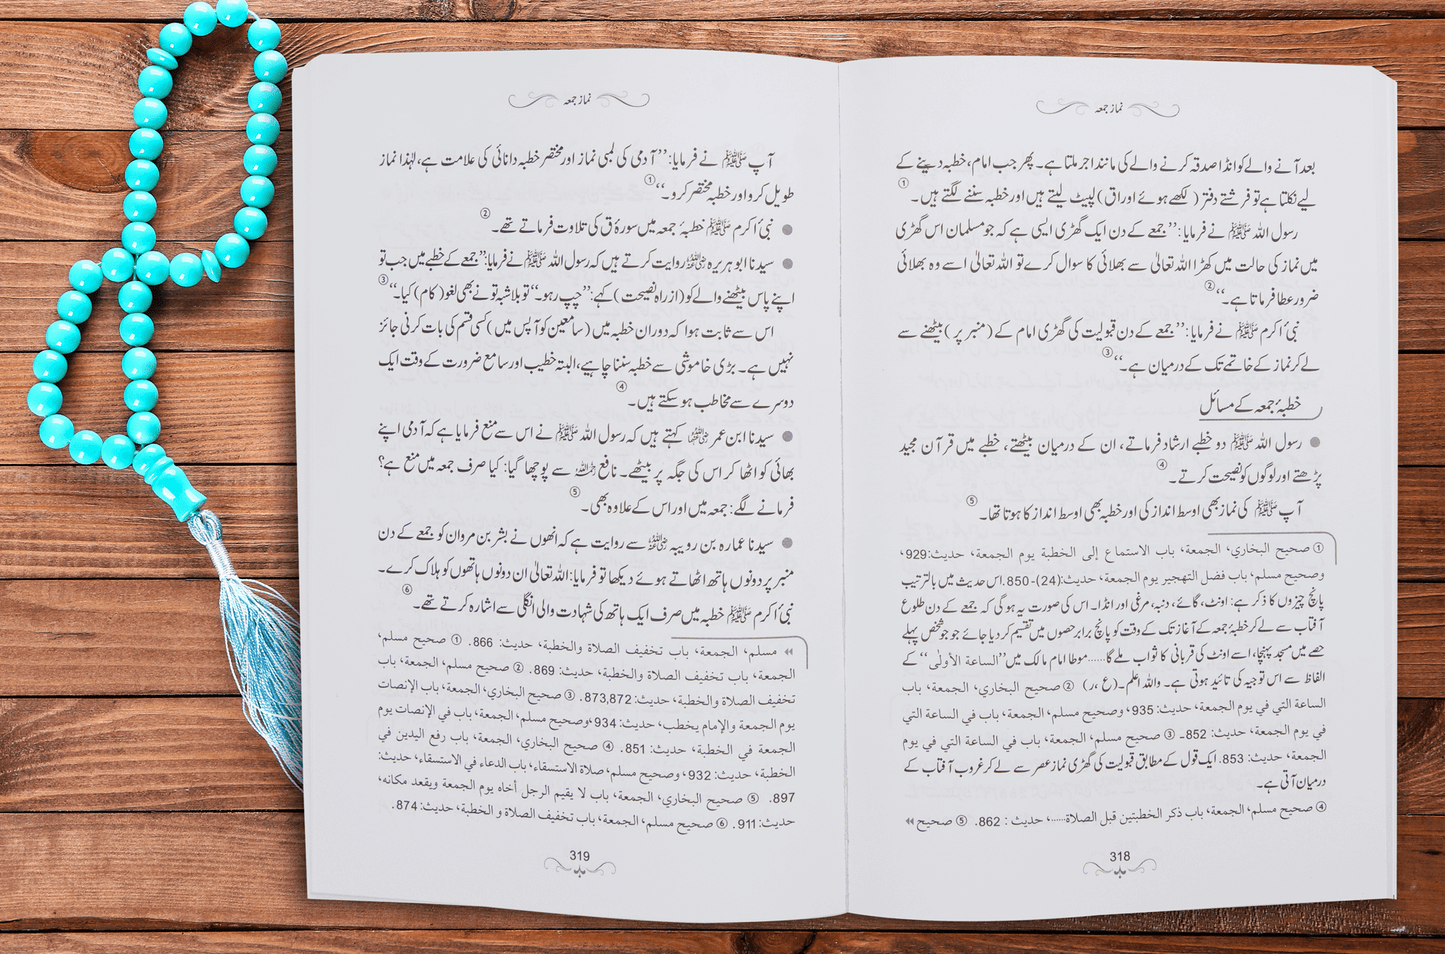 نماز جمعہ
بعد آنے والے کو انڈا صدقہ کرنے والے کی مانند اجر ملتا ہے۔ پھر جب امام، خطبہ دینے کے
لیے نکلتا ہے تو فرشتے دفتر (لکھے ہوئے اوراق) لپیٹ لیتے ہیں اور خطبہ سننے لگتے ہیں۔①
رسول اللہ ﷺ نے فرمایا: ’’جمعے کے دن ایک گھڑی ایسی ہے کہ جو مسلمان اس گھڑی
میں نماز کی حالت میں کھڑا اللہ تعالیٰ سے بھلائی کا سوال کرے تو اللہ تعالیٰ اسے وہ بھلائی
ضرور عطا فرماتا ہے۔‘‘②
نبیٔ اکرم ﷺ نے فرمایا: ’’جمعے کے دن قبولیت کی گھڑی امام کے (منبر پر) بیٹھنے سے
لے کر نماز کے خاتمے تک کے درمیان ہے۔‘‘③
خطبۂ جمعہ کے مسائل
● رسول اللہ ﷺ دو خطبے ارشاد فرماتے، ان کے درمیان بیٹھتے، خطبے میں قرآن مجید
پڑھتے اور لوگوں کو نصیحت کرتے۔④
آپ ﷺ کی نماز بھی اوسط انداز کی اور خطبہ بھی اوسط انداز کا ہوتا تھا۔⑤
① صحيح البخاري، الجمعة، باب الاستماع إلى الخطبة يوم الجمعة، حديث:929،
وصحيح مسلم، باب فضل التهجير يوم الجمعة، حديث:(24)-850. اس حدیث میں بالترتیب
پانچ چیزوں کا ذکر ہے: اونٹ، گائے، دنبہ، مرغی اور انڈا۔ اس کی صورت یہ ہوگی کہ جمعے کے دن طلوع
آفتاب سے لے کر خطبۂ جمعہ کے آغاز تک کے وقت کو پانچ برابر حصوں میں تقسیم کر دیا جائے جو جو شخص پہلے
حصے میں مسجد پہنچا، اسے اونٹ کی قربانی کا ثواب ملے گا...... موطا امام مالک میں ’’الساعة الأولى‘‘ کے
الفاظ سے اس توجیہ کی تائید ہوتی ہے۔ واللہ اعلم۔ (ع،ر) ② صحيح البخاري، الجمعة، باب
الساعة التي في يوم الجمعة، حديث: 935، وصحيح مسلم، الجمعة، باب في الساعة التي
في يوم الجمعة، حديث: 852۔ ③ صحيح مسلم، الجمعة، باب في الساعة التي في يوم
الجمعة، حديث: 853. ایک قول کے مطابق قبولیت کی گھڑی نماز عصر سے لے کر غروب آفتاب کے
درمیان آتی ہے۔
④ صحيح مسلم، الجمعة، باب ذكر الخطبتين قبل الصلاة......، حديث: 862. ⑤ صحيح ◂◂
318
نماز جمعہ
آپ ﷺ نے فرمایا: ’’آدمی کی لمبی نماز اور مختصر خطبہ دانائی کی علامت ہے، لہٰذا نماز
طویل کرو اور خطبہ مختصر کرو۔‘‘①
● نبیٔ اکرم ﷺ خطبۂ جمعہ میں سورۂ قٓ کی تلاوت فرماتے تھے۔②
● سیدنا ابو ہریرہ رضی اللہ عنہ روایت کرتے ہیں کہ رسول اللہ ﷺ نے فرمایا: ’’جمعے کے خطبے میں جب تو
اپنے پاس بیٹھنے والے کو (ازراہ نصیحت) کہے: ’’چپ رہو۔‘‘ تو بلاشبہ تو نے بھی لغو (کام) کیا۔‘‘③
اس سے ثابت ہوا کہ دوران خطبہ میں (سامعین کو آپس میں) کسی قسم کی بات کرنی جائز
نہیں ہے۔ بڑی خاموشی سے خطبہ سننا چاہیے، البتہ خطیب اور سامع ضرورت کے وقت ایک
دوسرے سے مخاطب ہو سکتے ہیں۔④
● سیدنا ابن عمر رضی اللہ عنہما کہتے ہیں کہ رسول اللہ ﷺ نے اس سے منع فرمایا ہے کہ آدمی اپنے
بھائی کو اٹھا کر اس کی جگہ پر بیٹھے۔ نافع رحمہ اللہ سے پوچھا گیا: کیا صرف جمعہ میں منع ہے؟
فرمانے لگے: جمعہ میں اور اس کے علاوہ بھی۔⑤
● سیدنا عمارہ بن رویبہ رضی اللہ عنہ سے روایت ہے کہ انھوں نے بشر بن مروان کو جمعے کے دن
منبر پر دونوں ہاتھ اٹھاتے ہوئے دیکھا تو فرمایا: اللہ تعالیٰ ان دونوں ہاتھوں کو ہلاک کرے۔
نبیٔ اکرم ﷺ خطبہ میں صرف ایک ہاتھ کی شہادت والی انگلی سے اشارہ کرتے تھے۔⑥
◂◂ مسلم، الجمعة، باب تخفيف الصلاة والخطبة، حديث: 866. ① صحيح مسلم،
الجمعة، باب تخفيف الصلاة والخطبة، حديث: 869. ② صحيح مسلم، الجمعة، باب
تخفيف الصلاة والخطبة، حديث: 873,872. ③ صحيح البخاري، الجمعة، باب الإنصات
يوم الجمعة والإمام يخطب، حديث: 934، وصحيح مسلم، الجمعة، باب في الإنصات يوم
الجمعة في الخطبة، حديث: 851. ④ صحيح البخاري، الجمعة، باب رفع اليدين في
الخطبة، حديث: 932، وصحيح مسلم، صلاة الاستسقاء، باب الدعاء في الاستسقاء، حديث:
897. ⑤ صحيح البخاري، الجمعة، باب لا يقيم الرجل أخاه يوم الجمعة ويقعد مكانه،
حديث: 911. ⑥ صحيح مسلم، الجمعة، باب تخفيف الصلاة و الخطبة، حديث: 874.
319